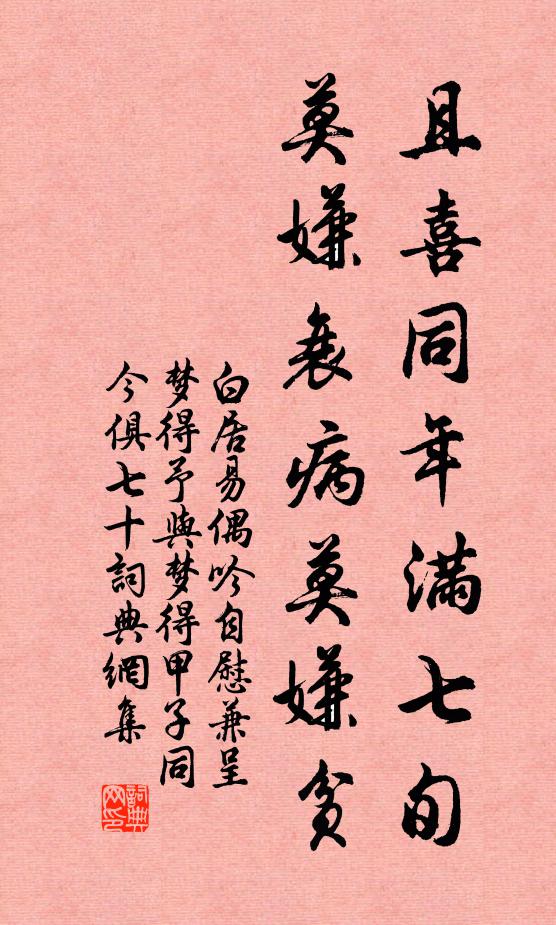 且喜同年满七旬
莫嫌衰病莫嫌贫
白居易偶吟自慰兼呈
梦得予與梦得甲子同
今俱七十詞典網集
詞典
网印